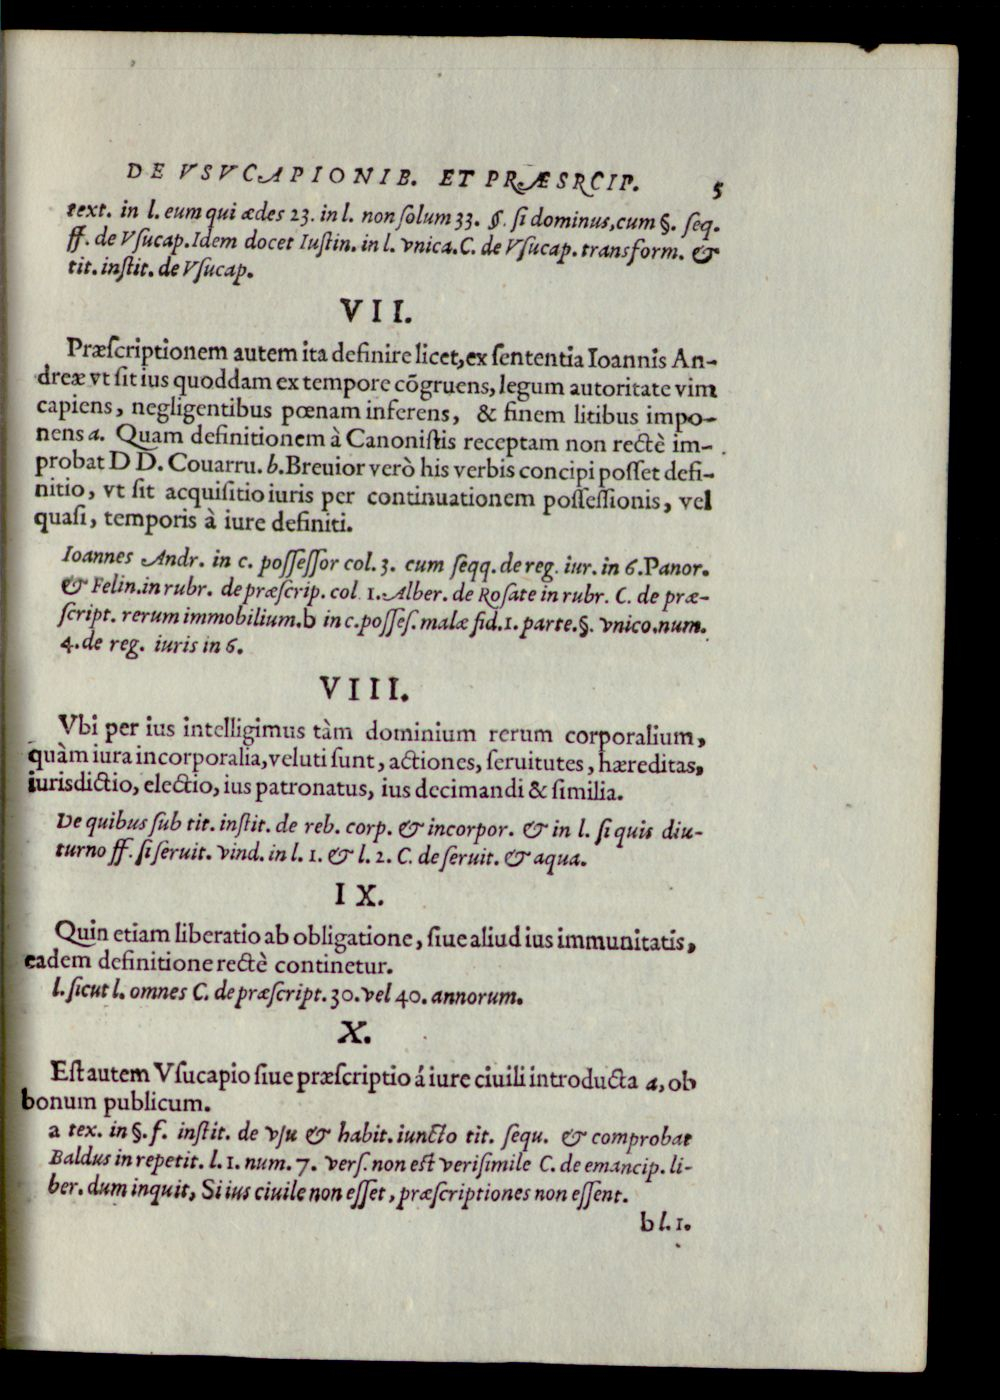 DE VSVCAPIONIB. ET PRÆSRCIP. 5
text. in l. eum qui ædes 23. in l. non ſolum 33. §. ſi dominus, cum §. ſeq.
ff. de Vſucap. Idem docet Iuſtin. in l. vnica. C. de Vſucap. transform. &
tit. inſtit. de Vſucap.
VII.
Præſcriptionem autem ita definire licet, ex ſententia Ioannis An-
dreæ vt ſit ius quoddam ex tempore cõgruens, legum autoritate vim
capiens, negligentibus pœnam inferens, & finem litibus impo-
nens a. Quam definitionem à Canoniſtis receptam non rectè im-
probat D D. Couarru. b. Breuior verò his verbis concipi poſſet defi-
nitio, vt ſit acquiſitio iuris per continuationem poſſeſſionis, vel
quaſi, temporis à iure definiti.
Ioannes Andr. in c. poſſeſſor col. 3. cum ſeqq. de reg. iur. in 6. Panor.
& Felin. in rubr. de præſcrip. col. 1. Alber. de Roſate in rubr. C. de præ-
ſcript. rerum immobilium. b in c. poſſeſ. malæ fid. 1. parte. §. vnico. num.
4. de reg. iuris in 6.
VIII.
Vbi per ius intelligimus tàm dominium rerum corporalium,
quàm iura incorporalia, veluti ſunt, actiones, ſeruitutes, hæreditas,
iurisdictio, electio, ius patronatus, ius decimandi & ſimilia.
De quibus ſub tit. inſtit. de reb. corp. & incorpor. & in l. ſi quis diu-
turno ff. ſi ſeruit. vind. in l. 1. & l. 2. C. de ſeruit. & aqua.
IX.
Quin etiam liberatio ab obligatione, ſiue aliud ius immunitatis,
eadem definitione rectè continetur.
l. ſicut l. omnes C. de præſcript. 30. vel 40. annorum.
X.
Eſt autem Vſucapio ſiue præſcriptio á iure ciuili introducta a, ob
bonum publicum.
a tex. in §. f. inſtit. de vſu & habit. iuncto tit. ſequ. & comprobat
Baldus in repetit. l. 1. num. 7. verſ. non eſt veriſimile C. de emancip. li-
ber. dum inquit, Si ius ciuile non eſſet, præſcriptiones non eſſent.
b l. 1.